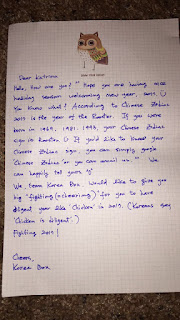 Dear Katrina
Hello, how are you? " Hope you are having nice
holiday season welcoming new year, 2017. U
You know what? According to Chinese Zodiac
2017 is the year of the Rooster. If you were
born in 1969, 1981, 1993, your Chinese Zodiac
sign is Rooster. U If you'd like to know your
Chinese Zodiac sign, you can simply google
'Chinese Zodiac' or you can email us. " We
can happily tell yours
We, team Korea Box would like to give you
big 'fighting (=cheering)' for you to have
diligent year like 'Chicken' in 2017. (Koreans say
'Chicken is diligent'.)
Fighting 2017!
Cheers,
Korea Box